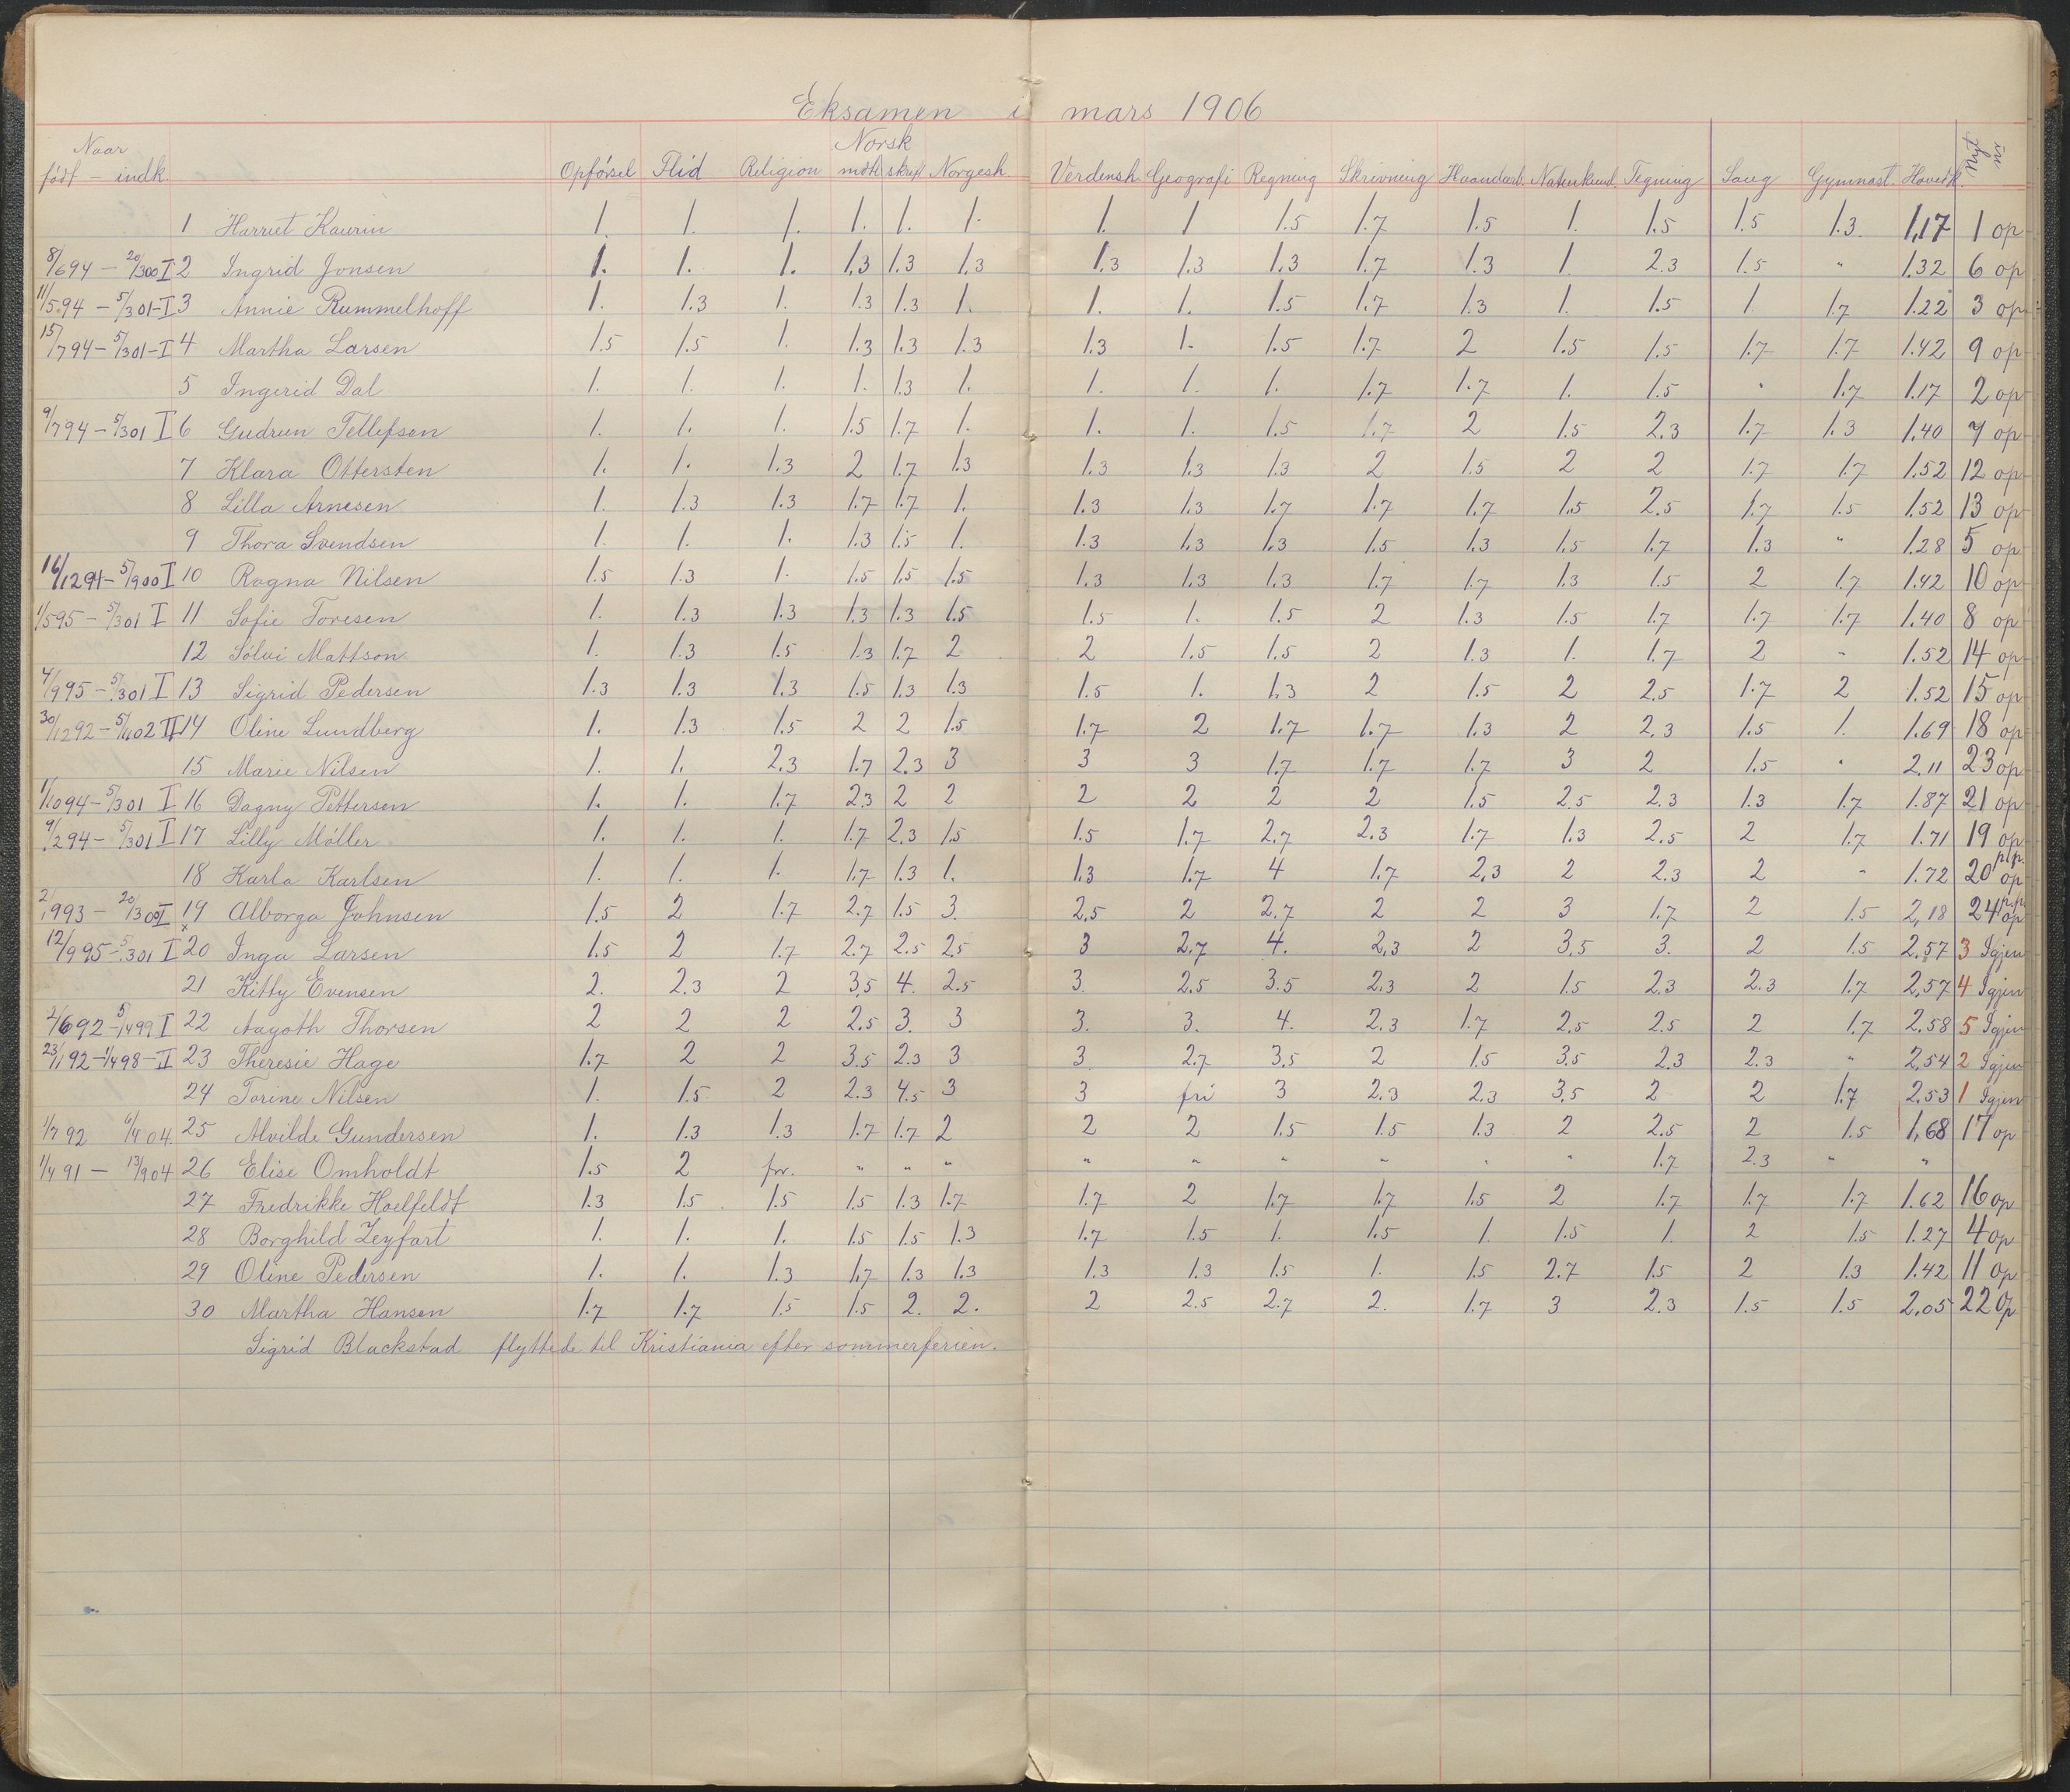 Eksamen i mars 1906
Naar Norsk Nyt nr
født - indk. Opførsel Flid Religion mdtl skrift Norgesh. Verdensh. Geografi Regning Skrivning Haandarb. Naturkund. Tegning Sang Gymnast. Hovedk.
1 Harriet Kaurin 1. 1. 1. 1. 1. 1. 1. 1 1.5 1.7 1.5 1. 1.5 1.5 1.3. 1,17 1 op
8/6 94 - 20/3 00 I 2 Ingrid Jonsen 1. 1. 1. 1.3 1.3 1.3 1.3 1.3 1.3 1.7 1.3 1. 2.3 1.5 " 1.32 6 op
11/5.94 - 5/3 01 - I 3 Annie Rummelhoff 1. 1.3 1. 1.3 1.3 1. 1. 1. 1.5 1.7 1.3 1. 1.5 1. 1.7 1.22 3 op
15/7 94 - 5/3 01 - I 4 Martha Larsen 1.5 1.5 1. 1.3 1.3 1.3 1.3 1. 1.5 1.7 2 1.5 1.5 1.7 1.7 1.42 9 op
5 Ingerid Dal 1. 1. 1. 1. 1.3 1. 1. 1. 1. 1.7 1.7 1. 1.5 " 1.7 1.17 2 op
9/7 94 - 5/3 01 I 6 Gudrun Tellefsen 1. 1. 1. 1.5 1.7 1. 1. 1. 1.5 1.7 2 1.5 2.3 1.7 1.3 1.40 7 op
7 Klara Ottersten 1. 1. 1.3 2 1.7 1.3 1.3 1.3 1.3 2 1.5 2 2 1.7 1.7 1.52 12 op
8 Lilla Arnesen 1. 1.3 1.3 1.7 1.7 1. 1.3 1.3 1.7 1.7 1.7 1.5 2.5 1.7 1.5 1.52 13 op
9 Thora Svendsen 1. 1. 1. 1.3 1.5 1. 1.3 1.3 1.3 1.5 1.3 1.5 1.7 1.3 " 1.28 5 op
16/12 94 - 5/9 00 I 10 Ragna Nilsen 1.5 1.3 1. 1.5 1.5 1.5 1.3 1.3 1.3 1.7 1.7 1.3 1.5 2 1.7 1.42 10 op
1/5 95 - 5/3 01 I 11 Sofie Toresen 1. 1.3 1.3 1.3 1.3 1.5 1.5 1. 1.5 2 1.3 1.5 1.7 1.7 1.7 1.40 8 op
12 Sölvi Mattson 1. 1.3 1.5 1.3 1.7 2 2 1.5 1.5 2 1.3 1. 1.7 2 " 1.52 14 op
4/9 95 - 5/3 01 I 13 Sigrid Pedersen 1.3 1.3 1.3 1.5 1.3 1.3 1.5 1. 1.3 2 1.5 2 2.5 1.7 2 1.52 15 op
30/12 92 - 5/11 02 II 14 Oline Lundberg 1. 1.3 1.5 2 2 1.5 1.7 2 1.7 1.7 1.3 2 2.3 1.5 1. 1.69 18 op
15 Marie Nilsen 1. 1. 2.3 1.7 2.3 3 3 3 1.7 1.7 1.7 3 2 1.5 " 2,11 23 op
1/10 94 - 5/3 01 I 16 Dagny Pettersen 1. 1. 1.7 2.3 2 2 2 2 2 2 1.5 2.5 2.3 1.3 1.7 1.87 21 op
9/2 94 - 5/3 01 I 17 Lilly Möller 1. 1. 1. 1.7 2.3 1.5 1.5 1.7 2.7 2.3 1.7 1.3 2.5 2 1.7 1.71 19 op
18 Karla Karlsen 1. 1. 1. 1.7 1.3 1. 1.3 1.7 4 1.7 2.3 2 2.3 2 " 1.72 20 op p.p.
2/9 93 - 20/3 00 I 19 Alborga Johnsen 1.5 2 1.7 2.7 1.5 3. 2,5 2 2.7 2 2 3 1.7 2 1.5 2,18 24 op p.p.
12/9 95 - 5/3 01 I 20 Inga Larsen 1.5 2 1.7 2.7 2.5 2.5 3 2.7 4. 2,3 2 3,5 3. 2 1.5 2.57 3 Igjen
21 Kitty Evensen 2. 2.3 2 3,5 4. 2.5 3. 2.5 3.5 2.3 2 1.5 2.3 2.3 1.7 2,57 4 Igjen
2/6 92 - 5/4 99 I 22 Aagoth Thorsen 2 2 2 2.5 3. 3 3. 3. 4. 2.3 1.7 2.5 2.5 2 1.7 2.58 5 Igjen
23/1 92 - 1/4 98 - II 23 Theresie Hage 1.7 2 2 3.5 2.3 3 3. 2.7 3,5 2 1.5 3.5 2.3 2.3 " 2,54 2 Igjen
24 Torine Nilsen 1. 1.5 2 2.3 4.5 3 3 fri 3 2.3 2.3 3,5 2 2 1.7 2.53 1 Igjen
1/7 92 6/4 04. 25 Alvilde Gundersen 1. 1.3 1.3 1.7 1.7 2 2 2 1.5 1.5 1.3 2 2.5 2 1.5 1,68 17 op
1/4 91 - 13/9 04 26 Elise Omholdt 1.5 2 fri. " " " " " " " " " 1.7 2.3 " "
27 Fredrikke Hoelfeldt 1.3 1.5 1.5 1.5 1.3 1.7 1.7 2 1.7 1.7 1.5 2 1.7 1.7 1.7 1.62 16 op
28 Borghild Zeyfart 1. 1. 1. 1.5 1.5 1.3 1.7 1.5 1. 1.5 1. 1.5 1. 2 1.5 1.27 4 op
29 Oline Pedersen 1. 1. 1.3 1.7 1.3 1.3 1.3 1.3 1.5 1. 1.5 2.7 1.5 2 1.3 1.42 11 op
30 Martha Hansen 1.7 1.7 1.5 1.5 2. 2. 2 2.5 2.7 2. 1.7 3 2.3 1.5 1.5 2.05 22 op
Sigrid Blackstad flyttede til Kristiania efter sommerferien.